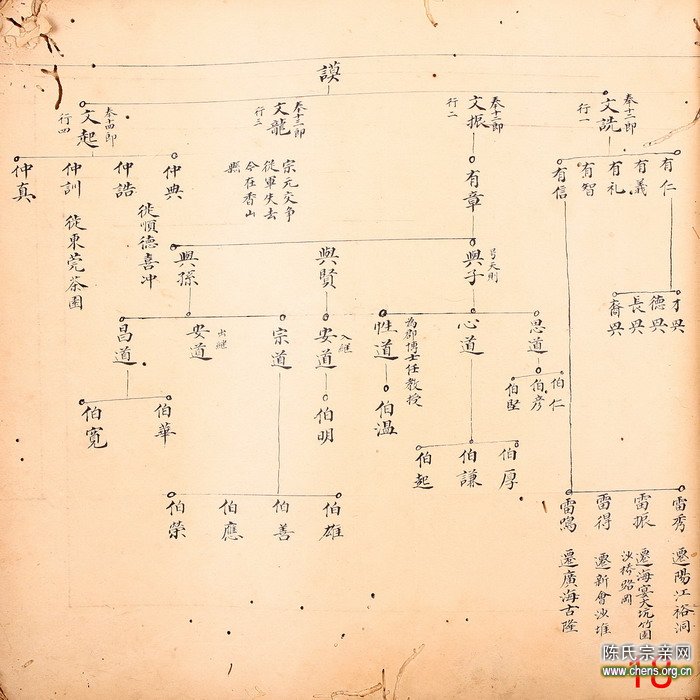 謨
文詵
奉十二郎
行一
文振
奉十二郎
行二
文龍
奉十三郎
行三
文起
奉十四郎
行四
有仁
有義
有礼
有智
有信
有章
宗元交爭
從軍失去
今在香山
縣
仲典
仲誥
徙順德喜冲
仲訓
徙東莞茶園
仲真
才興
德興
長興
裔興
與子
號天則
與賢
與孫
思道
心道
性道
為郡博士任教授
安道
入繼
宗道
安道
出繼
昌道
伯仁
伯彦
伯堅
伯厚
伯謙
伯起
伯溫
伯明
伯雄
伯善
伯應
伯榮
伯華
伯寬
雷秀
遷陽江裕洞
雷振
遷海宴大坑竹園
沙橋路岡
雷得
遷新會沙堆
雷鳴
遷廣海古隆
陈氏宗亲网
www.chens.org.cn
18